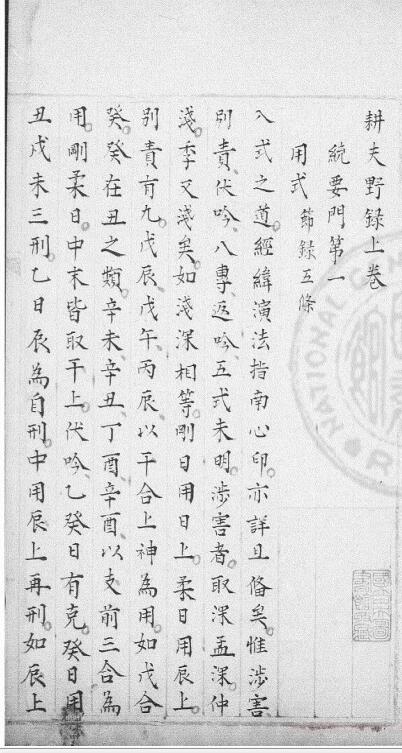 耕夫野録上卷
統要門第一
用式 節録五條
入式之道經緯演法指南心印亦詳且俻矣惟涉害
别責伏吟八專返吟五式未明涉害者取深孟深仲
淺季又淺矣如淺深相等剛日用日上柔日用辰上
别責有九戊辰戊午丙辰以干合上神為用如戊合
癸癸在丑之類辛未辛丑丁酉辛酉以支前三合為
用剛柔日中末皆取干上伏吟乙癸日有克癸日用
丑戌未三刑乙日辰為自刑中用辰上再刑如辰上
NATIONAL